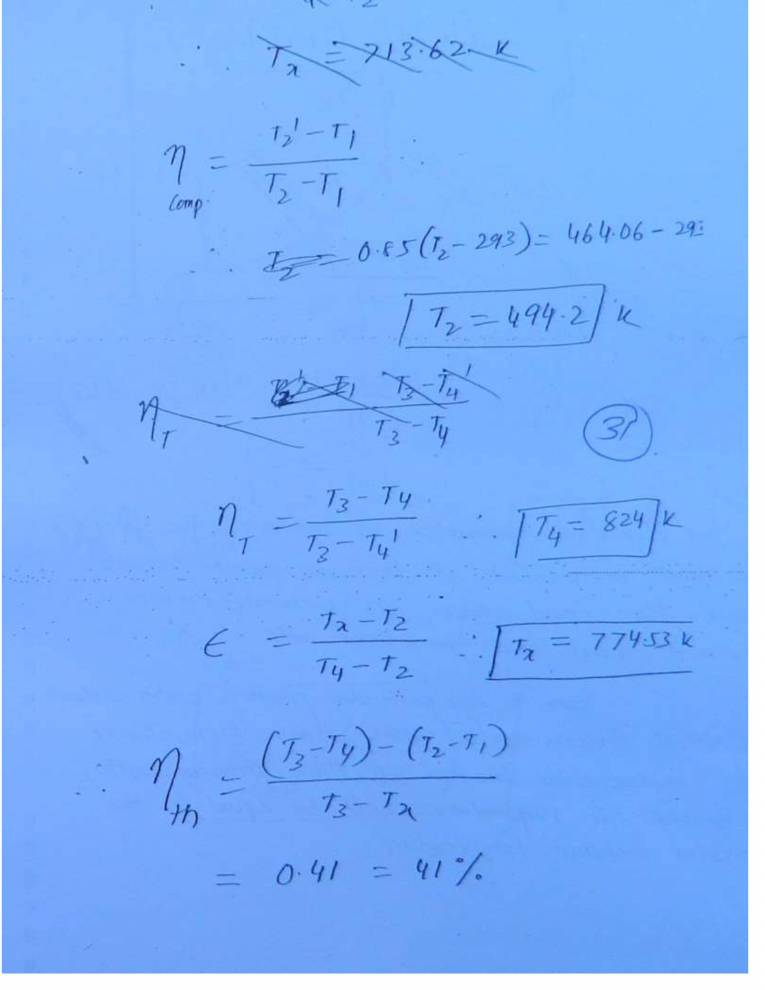 ∴ T_x = 713.62 K
η_comp = (T_2' - T_1) / (T_2 - T_1)
∴ T_2 = 0.85(T_2 - 293) = 464.06 - 29
T_2 = 494.2 K
η_T = T_3 - T_4' / T_3 - T_4
31
η_T = (T_3 - T_4) / (T_3 - T_4') ∴ T_4 = 824 K
ϵ = (T_x - T_2) / (T_4 - T_2) ∴ T_x = 774.53 K
∴ η_th = ((T_3 - T_4) - (T_2 - T_1)) / (T_3 - T_x)
= 0.41 = 41%